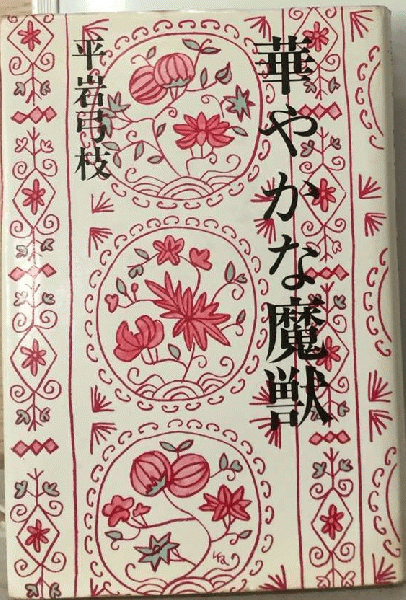 華やかな魔獣
平岩弓枝